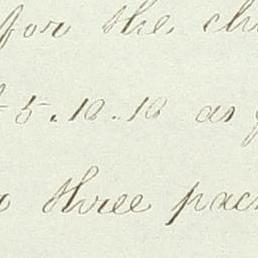 for the
5.10.10 as
three